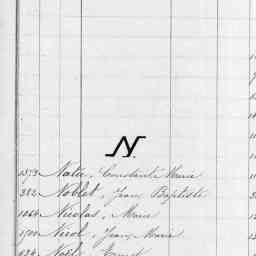 N.
1373 Natu, Constante Marie
282 Noblet, Jean Baptiste
1064 Nicolas, Marie
1700 Nicol, Jean Marie